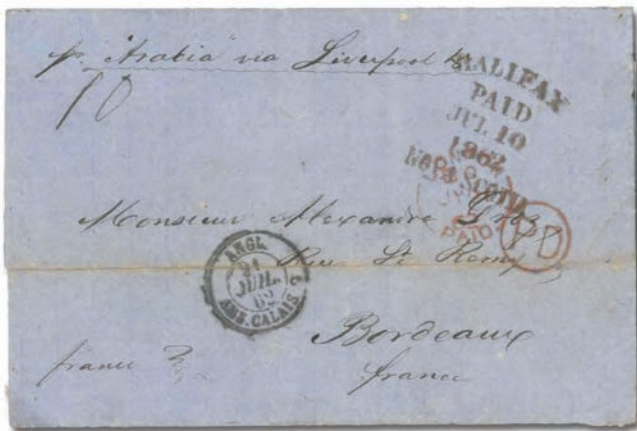 p. "Arabia" via Liverpool
10
HALIFAX
PAID
JUL 10
1862
PAID
PD
Monsieur Alexandre Gros
Rue St Remy
ANGL.
21
JUIL.
62
AMB. CALAIS G
Bordeaux
france
france